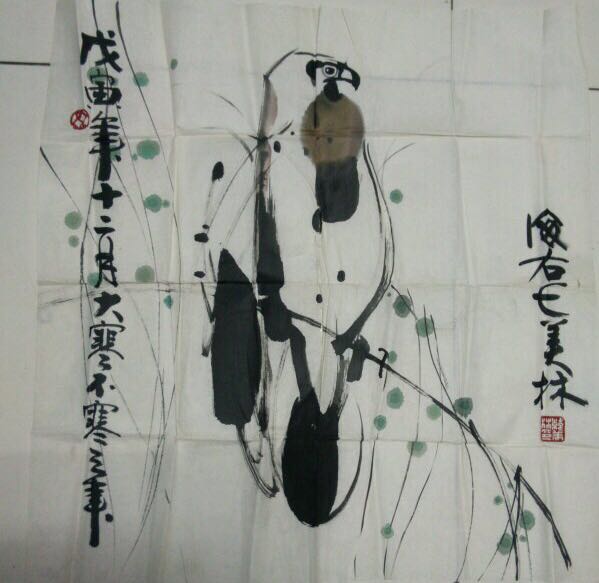 海右七美林
戊寅年十二月大寒不寒之年